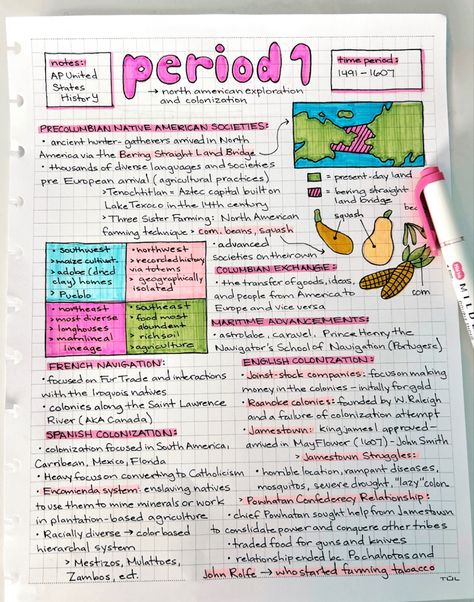 notes:
AP United
States
History
period 1
→ north american exploration
and colonization
time period:
1491-1607
PRECOLUMBIAN NATIVE AMERICAN SOCIETIES:
• ancient hunter-gatherers arrived in North
America via the Bering Straight Land Bridge
• thousands of diverse languages and societies
pre European arrival (agricultural practices)
> Tenochtitlan = Aztec capital built on
Lake Texoco in the 14th century
> Three Sister Farming: North American
farming technique > corn, beans, squash
• advanced
societies on their own
= present-day land
= bering straight
land bridge
squash
corn
• southwest
> maize cultivat.
> adobe (dried
clay) homes
> Pueblo
• northwest
> recorded history
via totems
> geographically
isolated
• northeast
> most diverse
> longhouses
> matrilineal
lineage
• southeast
> food most
abundent
> rich soil
> agriculture
COLUMBIAN EXCHANGE:
• the transfer of goods, ideas,
and people from America to
Europe and vice versa
MARITIME ADVANCEMENTS:
• astrolabe, caravel, Prince Henry the
Navigator's School of Navigation (Portugese)
FRENCH NAVIGATION:
• focused on Fur Trade and interactions
with the Iroquois natives
• colonies along the Saint Lawrence
River (AKA Canada)
SPANISH COLONIZATION:
• colonization focused in South America,
Carribean, Mexico, Florida
• Heavy focus on converting to Catholicism
• Encamienda system: enslaving natives
to use them to mine minerals or work
in plantation-based agriculture
• Racially diverse → color based
hierarchal system
> Mestizos, Mulattoes,
Zambos, ect.
ENGLISH COLONIZATION:
• Joinst-stock companies: focus on making
money in the colonies - initally for gold
• Roanoke colonies: founded by W. Raleigh
and a failure of colonization attempt
• Jamestown: king james I approved -
arrived in MayFlower (1607) - John Smith
> Jamestown Struggles:
• horrible location, rampant diseases,
mosquitos, severe drought, "lazy" colon.
> Powhatan Confederecy Relationship:
• chief Powhatan sought help from Jamestown
to consildate power and conquere other tribes
• traded food for guns and knives
• relationship ended bc. Pochahotas and
John Rolfe → who started farming tabacco
TŪL